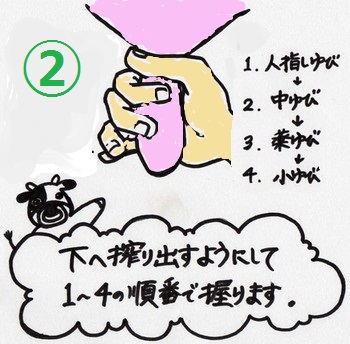 ②
1. 人指しゆび
↓
2. 中ゆび
↓
3. 薬ゆび
↓
4. 小ゆび
下へ搾り出すようにして
1〜4の順番で握ります。